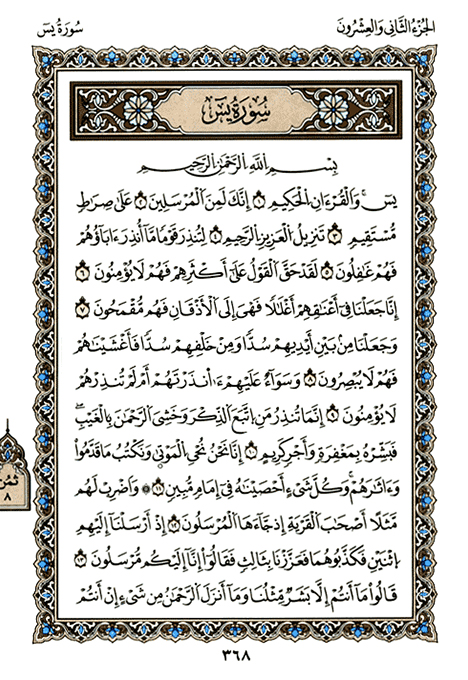 الجُزْءُ الثَّانِي وَالْعِشْرُونَ
سُورَةُ يسٓ
سُورَةُ يسٓ
بِسْمِ اللَّهِ الرَّحْمَٰنِ الرَّحِيمِ
يسٓ وَالْقُرْءَانِ الْحَكِيمِ ١ إِنَّكَ لَمِنَ الْمُرْسَلِينَ ٢ عَلَىٰ صِرَاطٍ
مُّسْتَقِيمٍ ٣ تَنزِيلُ الْعَزِيزِ الرَّحِيمِ ٤ لِتُنذِرَ قَوْمًا مَّا أُنذِرَ ءَابَاؤُهُمْ
فَهُمْ غَٰفِلُونَ ٥ لَقَدْ حَقَّ الْقَوْلُ عَلَىٰ أَكْثَرِهِمْ فَهُمْ لَا يُؤْمِنُونَ ٦
إِنَّا جَعَلْنَا فِي أَعْنَٰقِهِمْ أَغْلَٰلًا فَهِيَ إِلَى الْأَذْقَانِ فَهُم مُّقْمَحُونَ ٧
وَجَعَلْنَا مِنۢ بَيْنِ أَيْدِيهِمْ سُدًّا وَمِنْ خَلْفِهِمْ سُدًّا فَأَغْشَيْنَٰهُمْ
فَهُمْ لَا يُبْصِرُونَ ٨ وَسَوَآءٌ عَلَيْهِمْ ءَانذَرْتَهُمْ أَمْ لَمْ تُنذِرْهُمْ
لَا يُؤْمِنُونَ ٩ إِنَّمَا تُنذِرُ مَنِ اتَّبَعَ الذِّكْرَ وَخَشِيَ الرَّحْمَٰنَ بِالْغَيْبِ
فَبَشِّرْهُ بِمَغْفِرَةٍ وَأَجْرٍ كَرِيمٍ ١٠ إِنَّا نَحْنُ نُحْيِ الْمَوْتَىٰ وَنَكْتُبُ مَا قَدَّمُوا
وَءَاثَٰرَهُمْ وَكُلَّ شَيْءٍ أَحْصَيْنَٰهُ فِي إِمَامٍ مُّبِينٍ ١١ ۞ وَاضْرِبْ لَهُم
مَّثَلًا أَصْحَٰبَ الْقَرْيَةِ إِذْ جَاءَهَا الْمُرْسَلُونَ ١٢ إِذْ أَرْسَلْنَا إِلَيْهِمُ
اثْنَيْنِ فَكَذَّبُوهُمَا فَعَزَّزْنَا بِثَالِثٍ فَقَالُوا إِنَّا إِلَيْكُم مُّرْسَلُونَ ١٣
قَالُوا مَا أَنتُمْ إِلَّا بَشَرٌ مِّثْلُنَا وَمَا أَنزَلَ الرَّحْمَٰنُ مِن شَيْءٍ إِنْ أَنتُمْ
ثُمُن
٨
٣٦٨